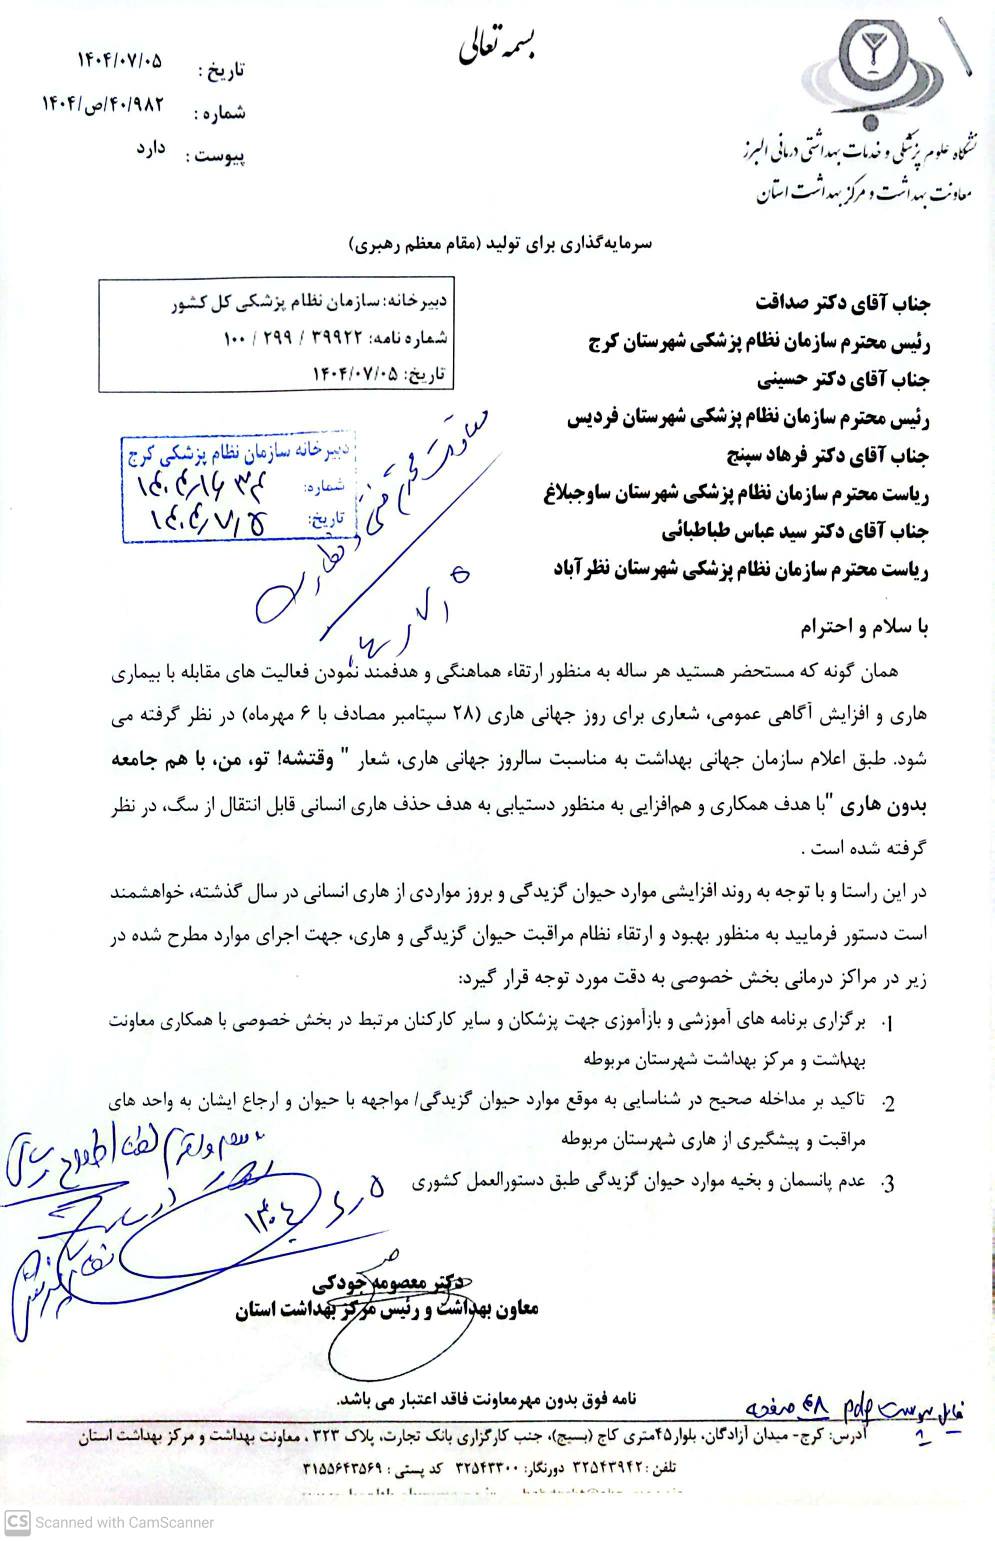 بسمه تعالی
تاریخ : ۱۴۰۴/۰۷/۰۵
شماره : ۱۴۰۴/ص/۴۰/۹۸۲
پیوست : دارد
نشگاه علوم پزشکی و خدمات بهداشتی درمانی البرز
معاونت بهداشت و مرکز بهداشت استان
سرمایه‌گذاری برای تولید (مقام معظم رهبری)
دبیرخانه: سازمان نظام پزشکی کل کشور
شماره نامه: ۳۹۹۲۲ / ۲۹۹ / ۱۰۰
تاریخ: ۱۴۰۴/۰۷/۰۵
دبیرخانه سازمان نظام پزشکی کرج
شماره:
تاریخ: ۱۴۰۴/۷/۵
معاونت محترم فنی و نظارت
جناب آقای دکتر صداقت
رئیس محترم سازمان نظام پزشکی شهرستان کرج
جناب آقای دکتر حسینی
رئیس محترم سازمان نظام پزشکی شهرستان فردیس
جناب آقای دکتر فرهاد سپنج
ریاست محترم سازمان نظام پزشکی شهرستان ساوجبلاغ
جناب آقای دکتر سید عباس طباطبائی
ریاست محترم سازمان نظام پزشکی شهرستان نظرآباد
با سلام و احترام
همان گونه که مستحضر هستید هر ساله به منظور ارتقاء هماهنگی و هدفمند نمودن فعالیت های مقابله با بیماری
هاری و افزایش آگاهی عمومی، شعاری برای روز جهانی هاری (۲۸ سپتامبر مصادف با ۶ مهرماه) در نظر گرفته می
شود. طبق اعلام سازمان جهانی بهداشت به مناسبت سالروز جهانی هاری، شعار " وقتشه! تو، من، با هم جامعه
بدون هاری "با هدف همکاری و هم‌افزایی به منظور دستیابی به هدف حذف هاری انسانی قابل انتقال از سگ، در نظر
گرفته شده است .
در این راستا و با توجه به روند افزایشی موارد حیوان گزیدگی و بروز مواردی از هاری انسانی در سال گذشته، خواهشمند
است دستور فرمایید به منظور بهبود و ارتقاء نظام مراقبت حیوان گزیدگی و هاری، جهت اجرای موارد مطرح شده در
زیر در مراکز درمانی بخش خصوصی به دقت مورد توجه قرار گیرد:
1. برگزاری برنامه های آموزشی و بازآموزی جهت پزشکان و سایر کارکنان مرتبط در بخش خصوصی با همکاری معاونت
بهداشت و مرکز بهداشت شهرستان مربوطه
2. تاکید بر مداخله صحیح در شناسایی به موقع موارد حیوان گزیدگی/ مواجهه با حیوان و ارجاع ایشان به واحد های
مراقبت و پیشگیری از هاری شهرستان مربوطه
3. عدم پانسمان و بخیه موارد حیوان گزیدگی طبق دستورالعمل کشوری
دکتر معصومه جودکی
معاون بهداشت و رئیس مرکز بهداشت استان
نامه فوق بدون مهرمعاونت فاقد اعتبار می باشد.
فایل پیوست pdf ۴۸ صفحه
آدرس: کرج- میدان آزادگان، بلوار۴۵متری کاج (بسیج)، جنب کارگزاری بانک تجارت، پلاک ۳۲۳ ، معاونت بهداشت و مرکز بهداشت استان
تلفن : ۳۲۵۴۳۹۴۲ دورنگار: ۳۲۵۴۳۳۰۰ کد پستی : ۳۱۵۵۶۴۳۵۶۹
CS Scanned with CamScanner